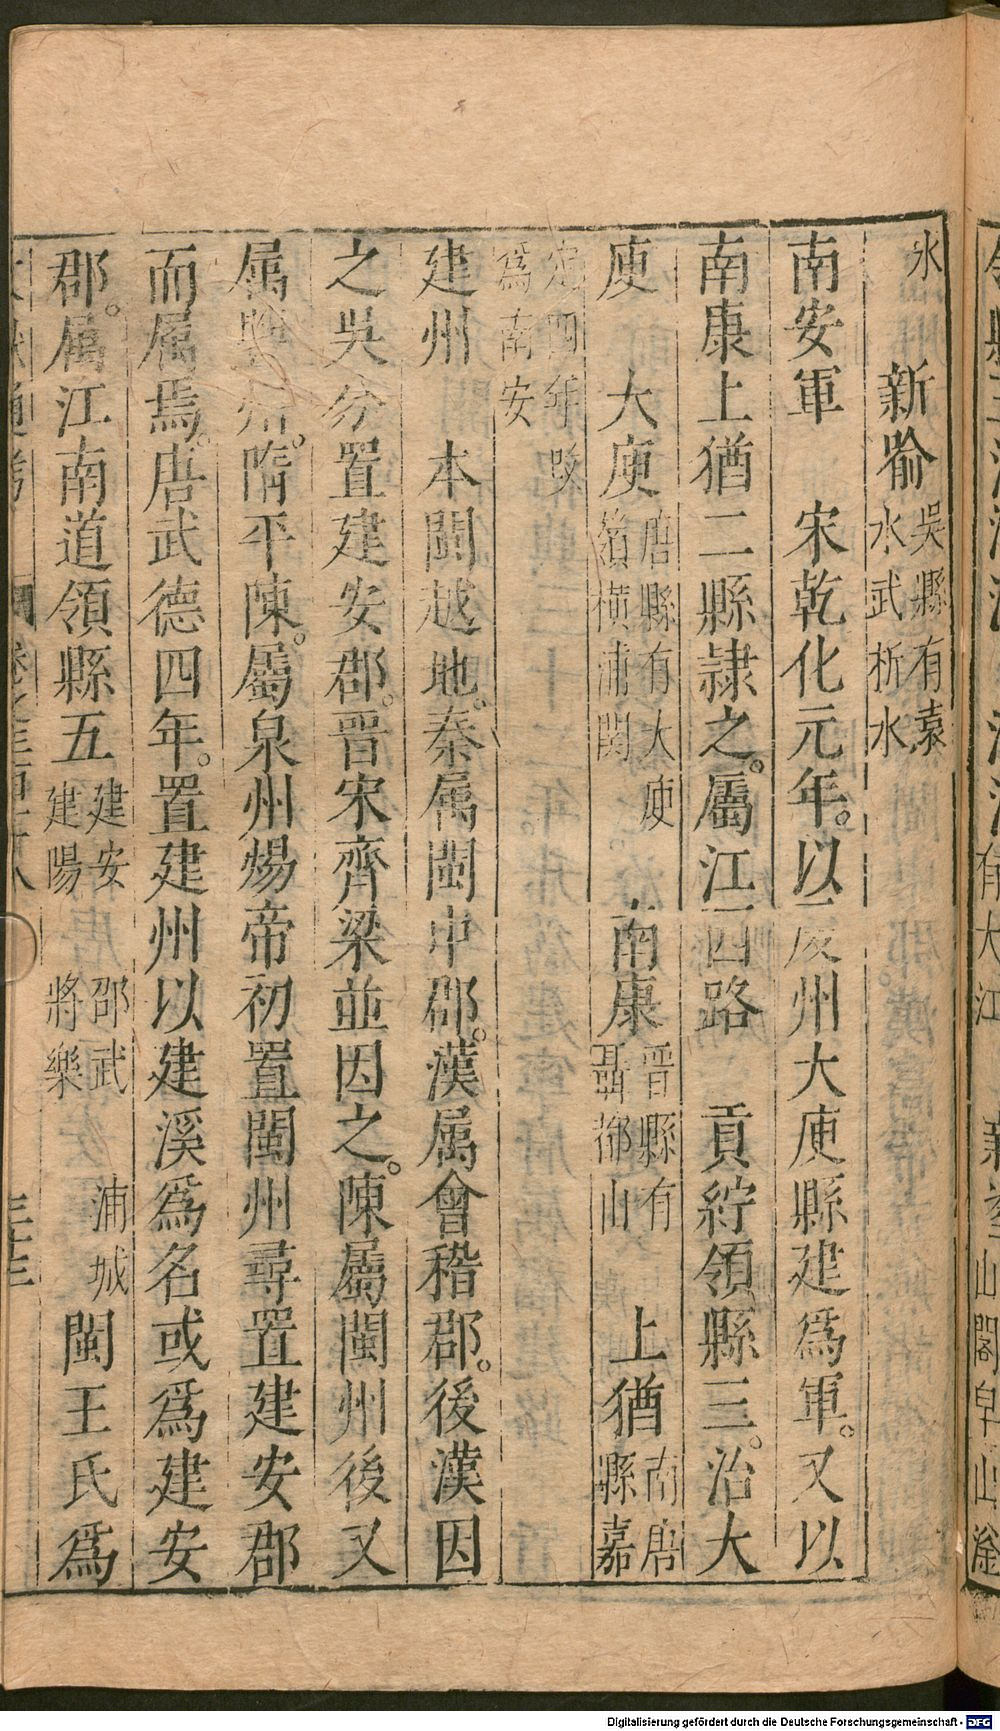 水　新喻 吳縣有袁水武析水
南安軍　宋乾化元年以虔州大庾縣建爲軍又以
南康上猶二縣隷之屬江西路　貢紵領縣三治大
庾　大庾 唐縣有大庾嶺橫浦関　南康 晋縣有聶都山　上猶 南唐縣嘉
定四年改爲南安
建州　本閩越地秦属閩中郡漢属會稽郡後漢因
之吳分置建安郡晋宋齊梁並因之陳屬閩州後又
属豐州隋平陳屬泉州煬帝初置閩州尋置建安郡
而属焉唐武德四年置建州以建溪爲名或爲建安
郡属江南道領縣五 建安　邵武　浦城　建陽　將樂　閩王氏爲
Digitalisierung gefördert durch die Deutsche Forschungsgemeinschaft - DFG